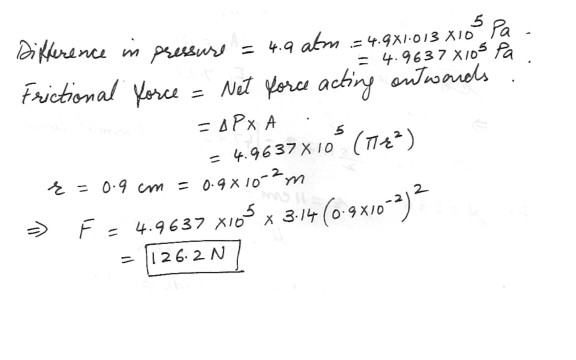 Difference in pressure = 4.9 atm = 4.9×1.013 ×10⁵ Pa.
= 4.9637 ×10⁵ Pa.
Frictional force = Net force acting outwards.
= ΔP× A
= 4.9637 × 10⁵ (πr²)
r = 0.9 cm = 0.9 × 10⁻² m
⇒ F = 4.9637 ×10⁵ × 3.14 (0.9×10⁻²)²
= 126.2 N